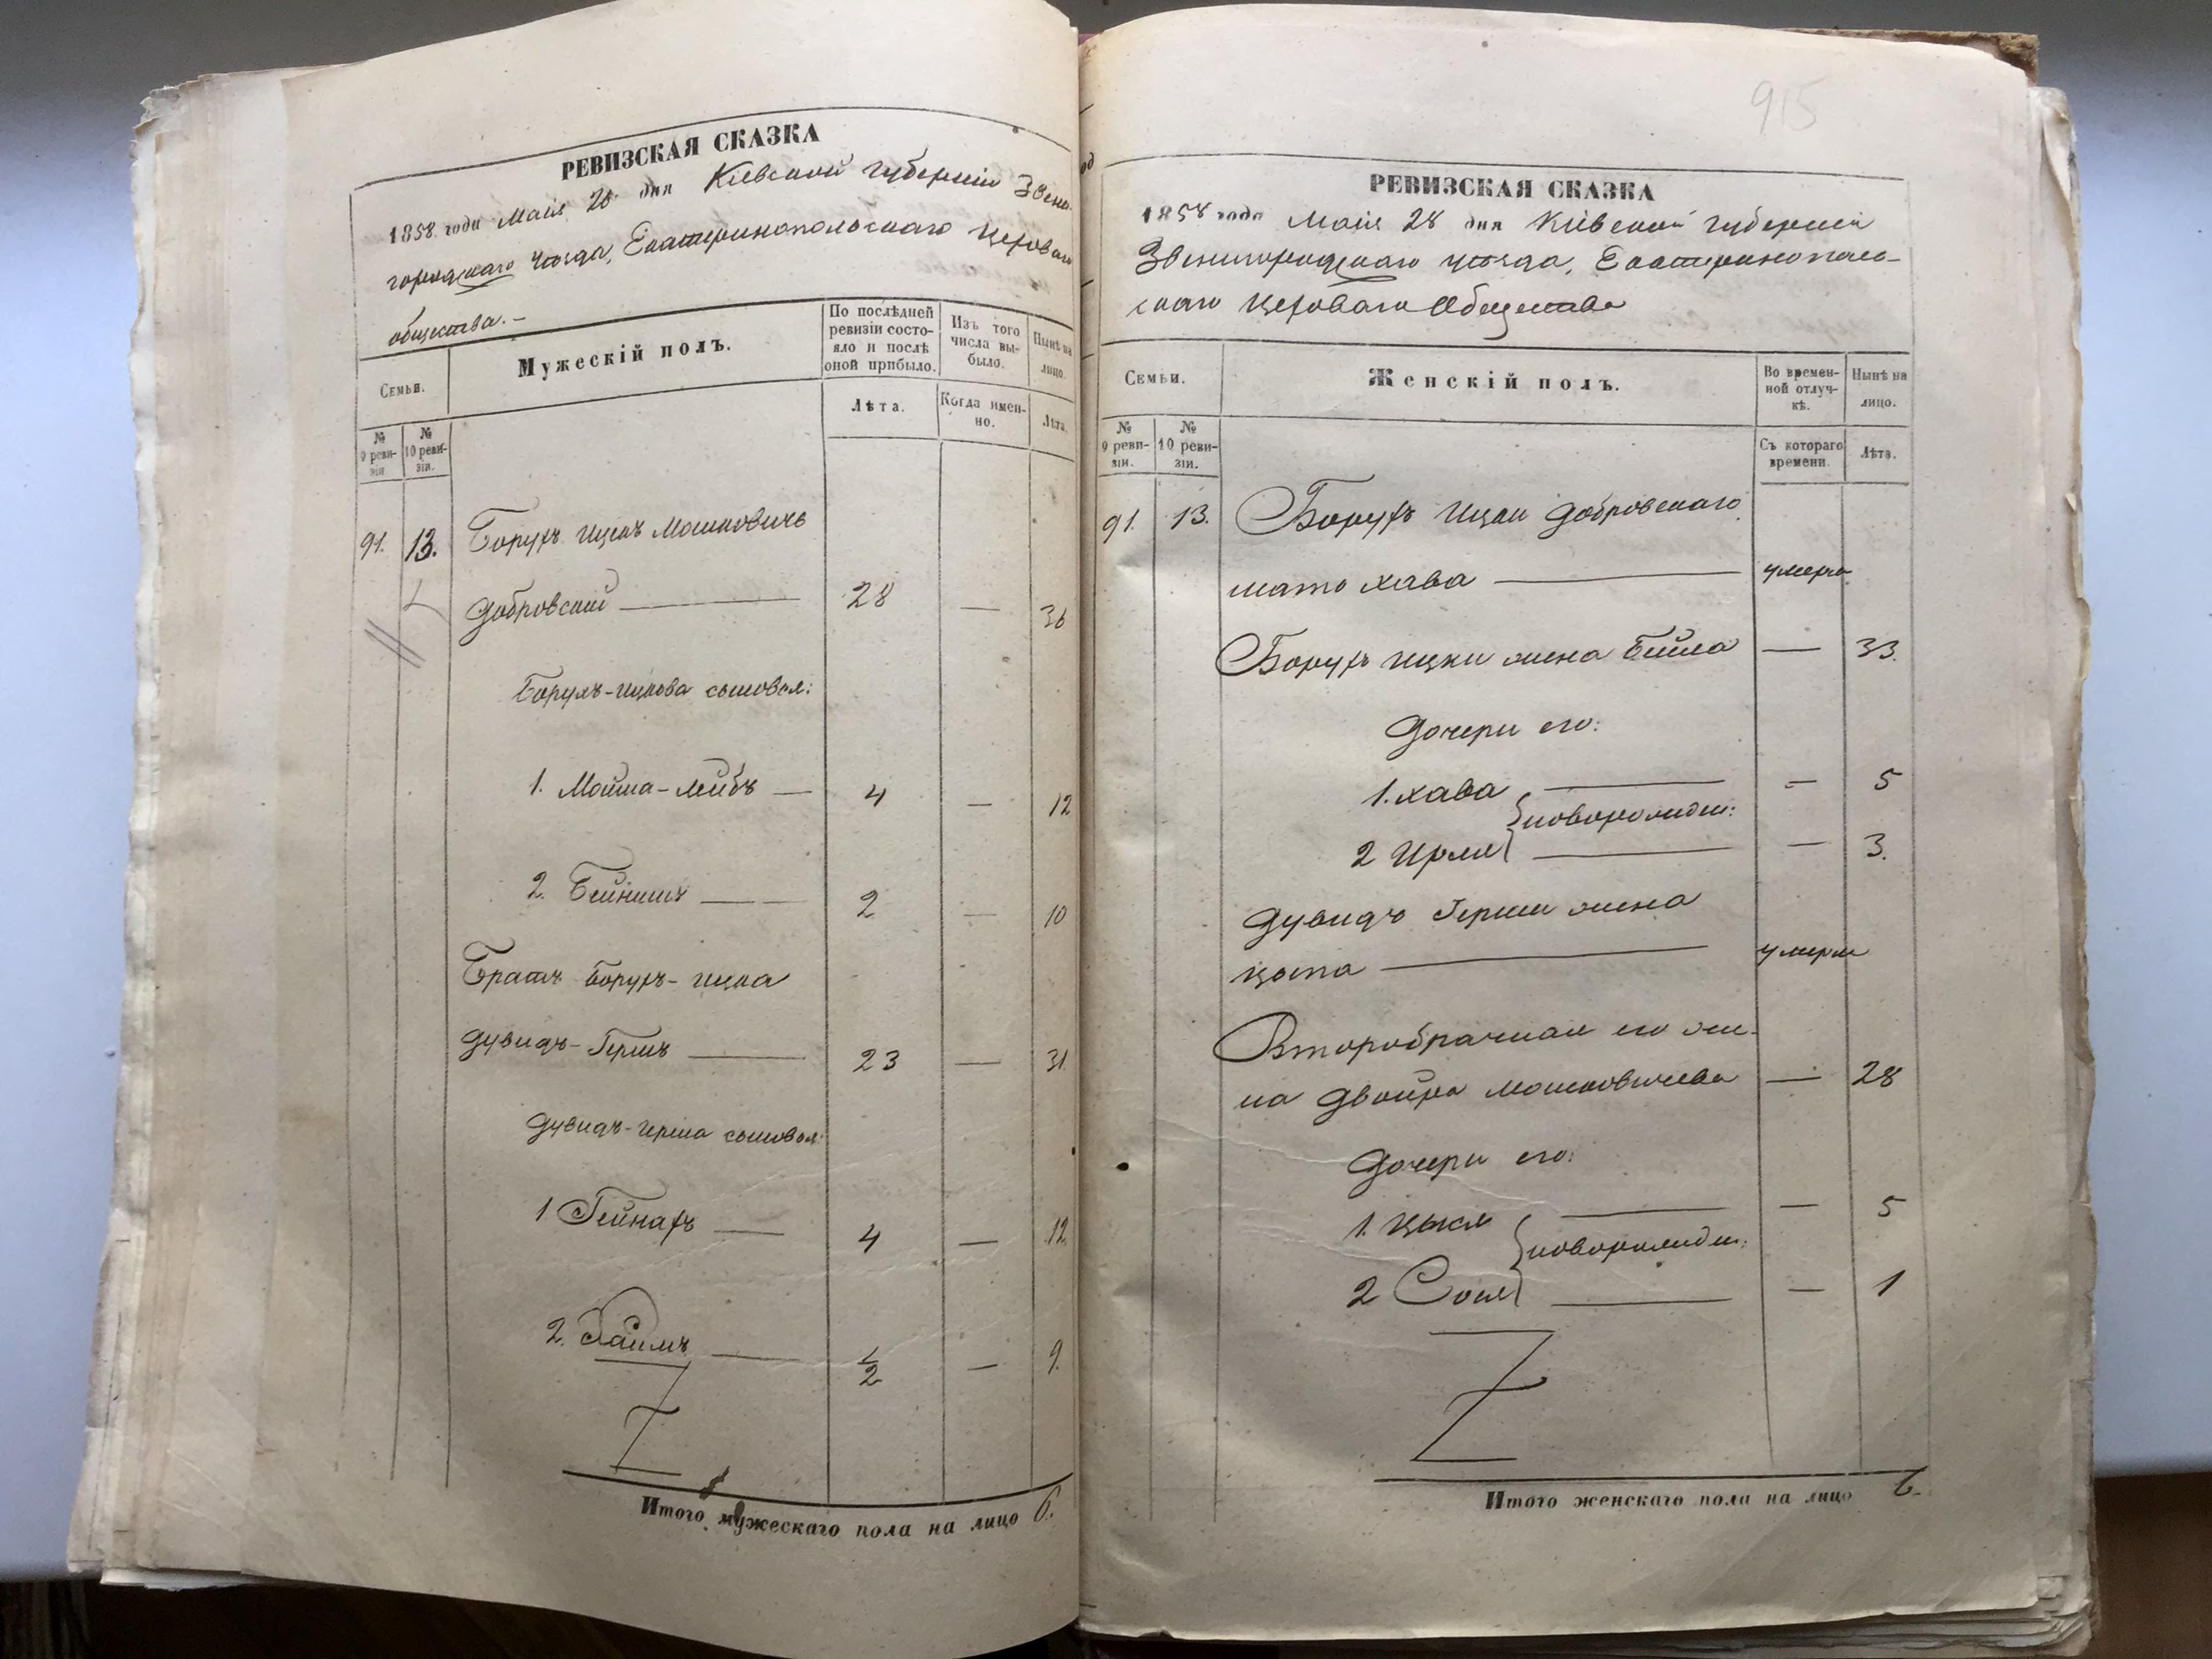 РЕВИЗСКАЯ СКАЗКА
1858 года Маія 28 дня Кіевской губерніи Звени-
городскаго уѣзда, Екатеринопольскаго Цеховаго
общества.-
Семьи.
Мужескій полъ.
По послѣдней ревизіи состо-яло и послѣ оной прибыло.
Изъ того числа вы-было.
Нынѣ на лицо.
Лѣта.
Когда имен-но.
Лѣта.
№ 9 реви-зіи.
№ 10 реви-зіи.
91. 13. Борухъ Ицекъ Мошковичъ
Добровский — 28 — 36
Борухъ-Ицкова сыновья:
1. Мойша-Лейбъ — 4 — 12
2. Бейнишъ — 2 — 10
Братъ Борухъ-Ицка
Дувидъ-Гершъ — 23 — 31.
Дувидъ-Герша сыновья:
1 Гейнахъ — 4 — 12.
2. Хаимъ — 1/2 — 9.
Итого мужескаго пола на лицо 6.
915
РЕВИЗСКАЯ СКАЗКА
1858 года Маія 28 дня Кіевской губерніи
Звенигородскаго уѣзда, Екатеринополь-
скаго Цеховаго Общества
Семьи.
Женскій полъ.
Во времен-ной отлуч-кѣ.
Нынѣ на лицо.
Съ котораго времени.
Лѣта.
№ 9 реви-зіи.
№ 10 реви-зіи.
91. 13. Борухъ Ицки Добровскаго
мать Хава — умерла
Борухъ Ицки жена Бейла — 33.
Дочери его:
1. Хава — 5
новорожден:
2 Ирля — 3.
Дувидъ Герши жена
— умерла
Второбрачная его же-
на Двойра Мошковичева — 28
Дочери его:
1. — 5
новорожден:
2 Сося — 1
Итого женскаго пола на лицо 6.